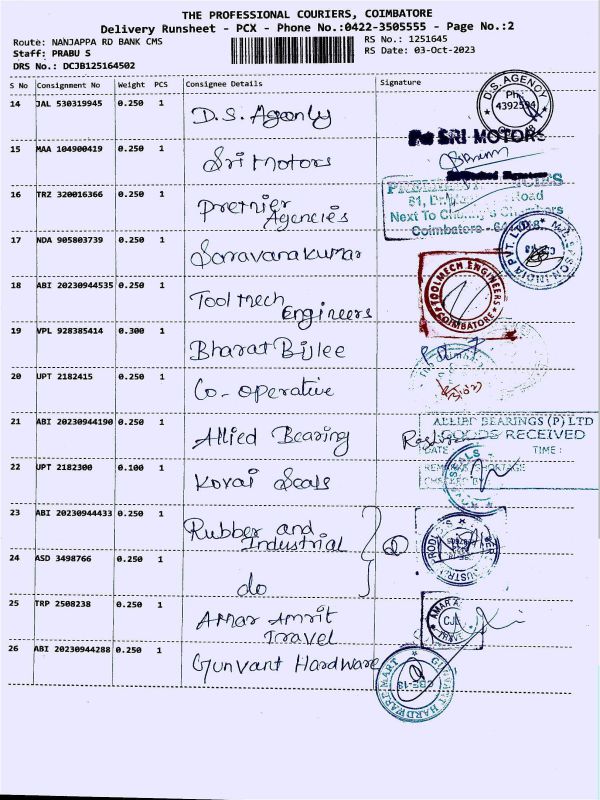 THE PROFESSIONAL COURIERS, COIMBATORE
Delivery Runsheet - PCX - Phone No.:0422-3505555 - Page No.:2
Route: NANJAPPA RD BANK CMS
RS No.: 1251645
Staff: PRABU S
RS Date: 03-Oct-2023
DRS No.: DCJB125164502
S No Consignment No Weight PCS Consignee Details Signature
14 JAL 530319945 0.250 1 D.S. Agenly
D.S. AGENCY
Ph
4392594
15 MAA 104900419 0.250 1 Sri Motors
For SRI MOTORS
16 TRZ 320016366 0.250 1 Premier
Agencies
Next To
Coimbatore
17 NDA 905803739 0.250 1 Saravanakumar
INDIA PVT. LTD
18 ABI 20230944535 0.250 1 Tool Mech
Engineers
TOOLMECH ENGINEERS
COIMBATORE
19 VPL 928385414 0.300 1 Bharat Bijlee
20 UPT 2182415 0.250 1 Co-operative
21 ABI 20230944190 0.250 1 Allied Bearing
ALLIED BEARINGS (P) LTD
GOODS RECEIVED
DATE TIME :
22 UPT 2182300 0.100 1 Kovai Seals
REMARKS SHORTAGE
CHECKED BY
SEALS
23 ABI 20230944433 0.250 1 Rubber and
Industrial
24 ASD 3498766 0.250 1 do
25 TRP 2508238 0.250 1 Amar Amrit
Travel
AMAR A
CJB
TRAVE
26 ABI 20230944288 0.250 1 Gunvant Hardware
GUNVANT HARDWARE MART
CBE-13